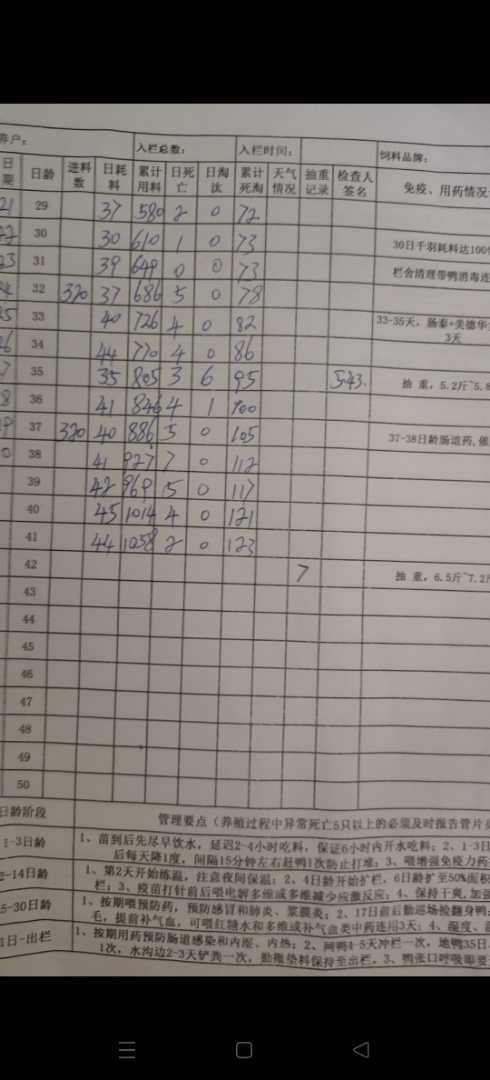 养户： 入栏总数： 入栏时间： 饲料品牌：
日期 日龄 进料数 日耗料 累计用料 日死亡 日淘汰 累计死淘 天气情况 抽重记录 检查人签名 免疫、用药情况
21 29 37 580 2 0 72
22 30 30 610 1 0 73 30日千羽耗料达100
23 31 39 649 0 0 73 栏舍清理带鸭消毒连
32 320 37 686 5 0 78
33 40 726 4 0 82 33-35天，肠泰+美德华
3天
34 44 770 4 0 86
35 35 805 3 6 95 543. 抽重，5.2斤~5.8
36 41 846 4 1 100
37 320 40 886 5 0 105 37-38日龄肠道药,催
38 41 927 7 0 112
39 42 969 5 0 117
40 45 1014 4 0 121
41 44 1058 2 0 123
42 7 抽重，6.5斤~7.2斤
43
44
45
46
47
48
49
50
日龄阶段 管理要点（养殖过程中异常死亡5只以上的必须及时报告管片
1-3日龄 1、苗到后先尽早饮水，延迟2-4小时吃料，保证6小时内开水吃料；2、1-3日
后每天降1度，间隔15分钟左右赶鸭1次防止打堆；3、喂增强免疫力药
-14日龄 1、第2天开始炼温，注意夜间保温；2、4日龄开始扩栏，6日龄扩至50%面积
栏；3、疫苗打针前后喂电解多维或多维减少应激反应；4、保持干爽,加强
5-30日龄 1、按期喂预防药，预防感冒和肺炎、浆膜炎；2、17日前后勤巡场捡翻身鸭；
毛，提前补气血，可喂红糖水和多维或补气血类中药连用3天；4、湿度、
1日-出栏 1、按期用药预防肠道感染和内湿、内热；2、网鸭4-5天冲栏一次，地鸭35日
1次，水沟边2-3天铲粪一次，勤撒垫料保持至出栏。3、鸭张口呼吸即要